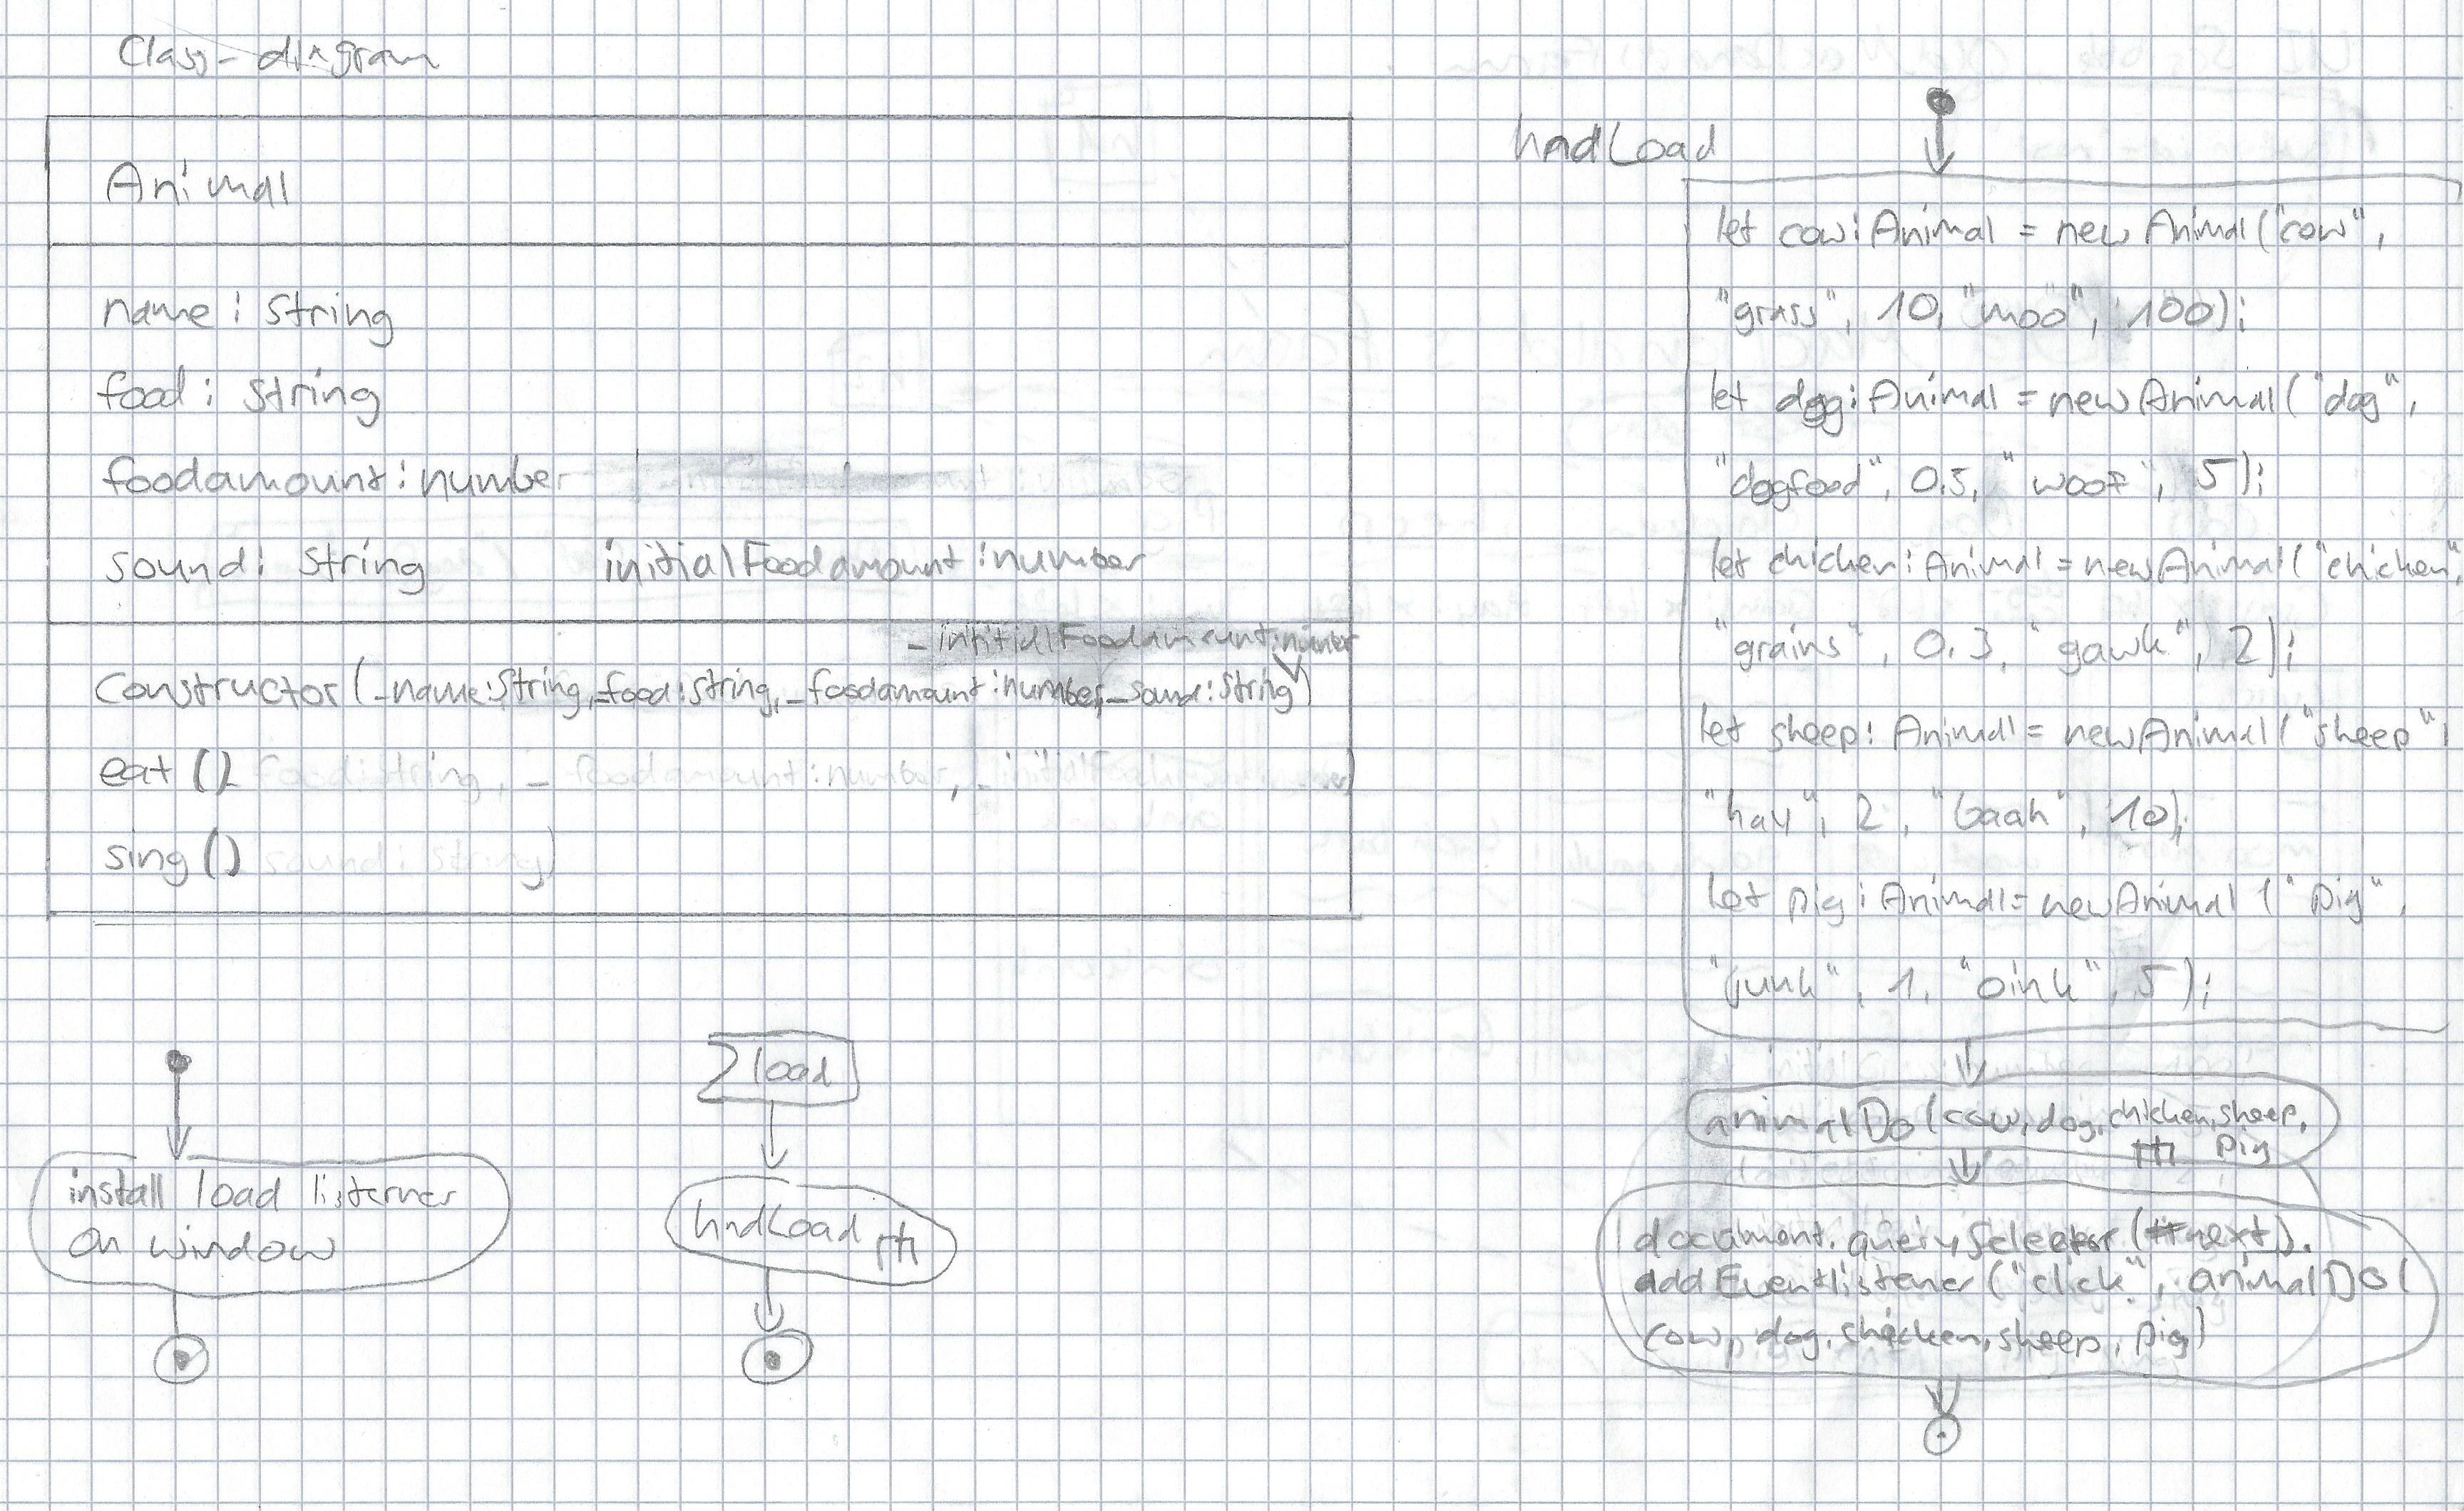 Class-diagram
Animal
name: string
food: string
foodamount: number
sound: string initialFoodamount: number
_intitialFoodamount: number
Constructor (_name: string, _food: string, _foodamount: number, _sound: string)
eat ()
sing ()
install load listener
on window
load
hndLoad
hndLoad
let cow: Animal = new Animal ("cow",
"grass", 10, "moo", 100);
let dog: Animal = new Animal ("dog",
"dogfood", 0.5, "woof", 5);
let chicken: Animal = new Animal ("chicken",
"grains", 0.3, "gawk", 2);
let sheep: Animal = new Animal ("sheep",
"hay", 2, "baah", 10);
let pig: Animal = new Animal ("pig",
"junk", 1, "oink", 5);
animalDo (cow, dog, chicken, sheep,
pig
document.querySelector (#next).
addEventlistener ("click", animalDo (
cow, dog, chicken, sheep, pig)